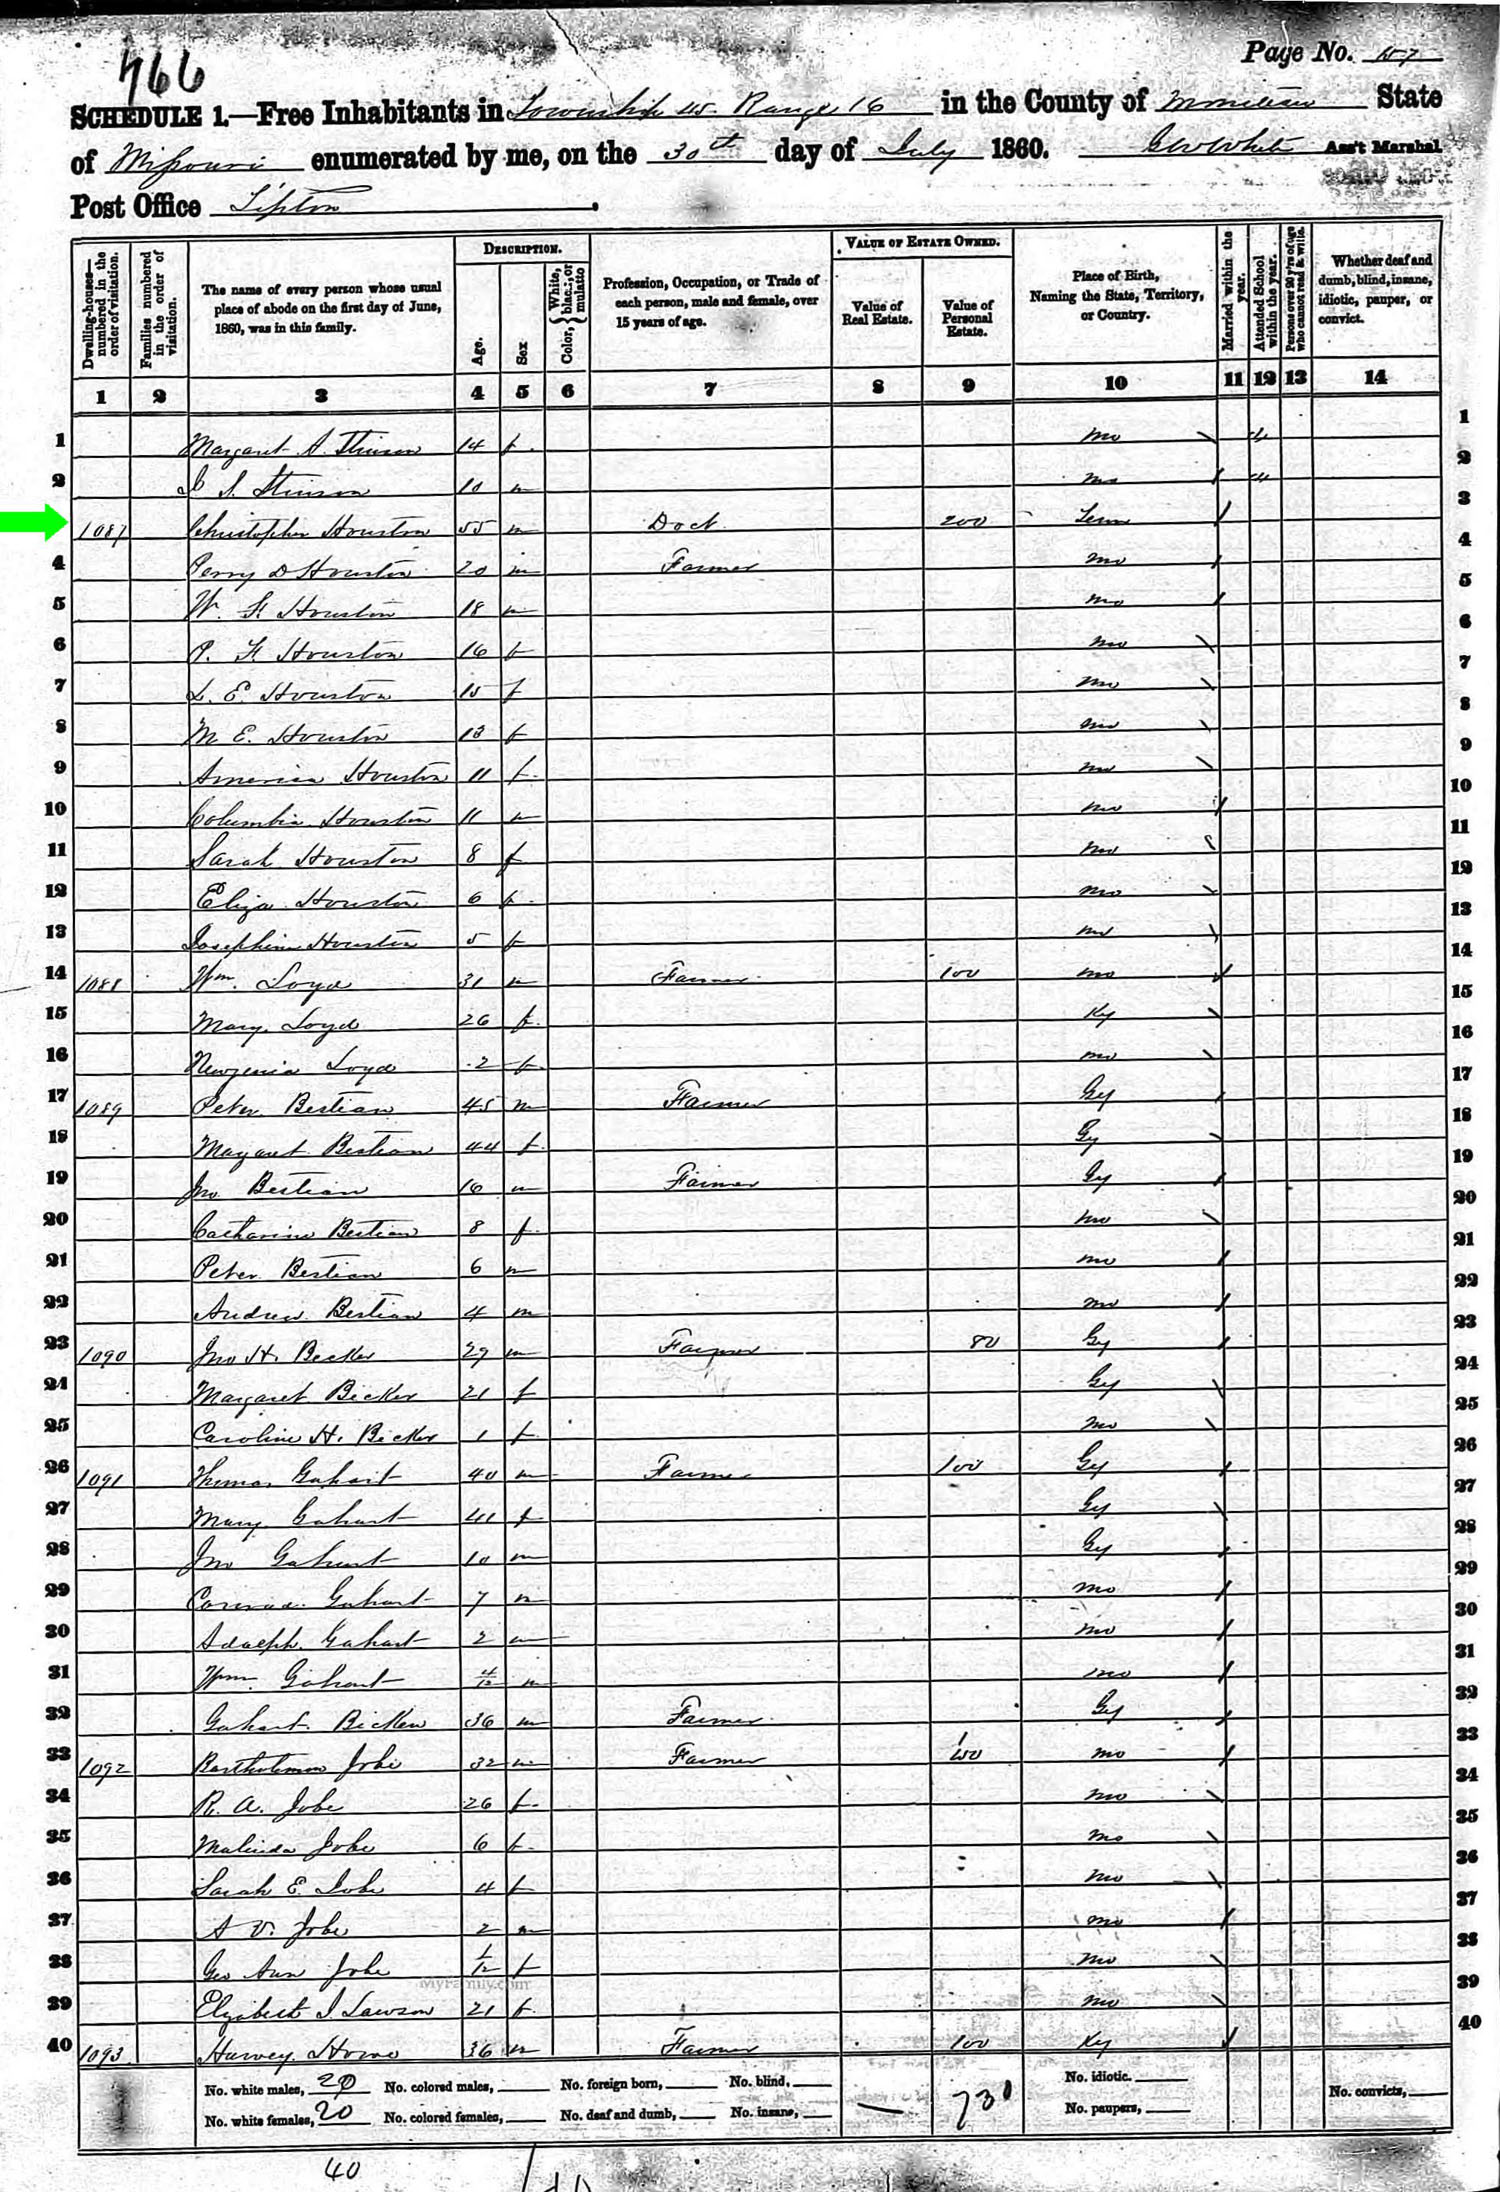 766
Page No. 157
SCHEDULE 1.—Free Inhabitants in Township 45 Range 16 in the County of Moniteau State
of Missouri enumerated by me, on the 30th day of July 1860. G W White Ass't Marshal.
Post Office Lipton.
Dwelling-houses—numbered in the order of visitation.
Families numbered in the order of visitation.
The name of every person whose usual place of abode on the first day of June, 1860, was in this family.
DESCRIPTION.
Age.
Sex
Color, { White, black, or mulatto
Profession, Occupation, or Trade of each person, male and female, over 15 years of age.
VALUE OF ESTATE OWNED.
Value of Real Estate.
Value of Personal Estate.
Place of Birth, Naming the State, Territory, or Country.
Married within the year.
Attended School within the year.
Persons over 20 y'rs of age who cannot read & write.
Whether deaf and dumb, blind, insane, idiotic, pauper, or convict.
1 2 3 4 5 6 7 8 9 10 11 12 13 14
1 Margaret A. Stinson 14 f. Mo 1
2 S. Stinson 10 m Mo 2
3 1087 Christopher Houston 55 m Doct. 200 Tenn 3
4 Perry D Houston 20 m Farmer Mo 4
5 W. H. Houston 18 m Mo 5
6 P. H. Houston 16 f Mo 6
7 L. E. Houston 15 f Mo 7
8 M E. Houston 13 f Mo 8
9 America Houston 11 f. Mo 9
10 Columbia Houston 11 m Mo 10
11 Sarah Houston 8 f Mo 11
12 Eliza Houston 6 f. Mo 12
13 Josephine Houston 5 f Mo 13
14 1088 Wm. Loyd 31 m Farmer 100 Mo 14
15 Mary Loyd 26 f. Ky 15
16 Newzenia Loyd 2 f. Mo 16
17 1089 Peter Bestian 45 m Farmer Gy 17
18 Margaret Bestian 44 f. Gy 18
19 Jno Bestian 16 m Farmer Gy 19
20 Catharine Bestian 8 f. Mo 20
21 Peter Bestian 6 m Mo 21
22 Andrew Bestian 4 m Mo 22
23 1090 Jno H. Becker 29 m Farmer 80 Gy 23
24 Margaret Becker 21 f Gy 24
25 Caroline H. Becker 1 f. Mo 25
26 1091 Thomas Gahart 40 m Farmer 100 Gy 26
27 Mary Gahart 41 f Gy 27
28 Jno Gahart 10 m Gy 28
29 Conrad Gahart 7 m Mo 29
30 Adolph Gahart 2 m Mo 30
31 Wm. Gahart 4/12 m Mo 31
32 Gahart Bicken 36 m Farmer Gy 32
33 1092 Bartholomew Jobe 32 m Farmer 150 Mo 33
34 R. A. Jobe 26 f. Mo 34
35 Malinda Jobe 6 f. Mo 35
36 Sarah E. Jobe 4 f Mo 36
37 A V. Jobe 2 m Mo 37
38 Geo Ann Jobe 1/12 f Mo 38
39 Elizabeth J. Lawson 21 f. Mo 39
40 1093 Harvey Howe 36 m Farmer 100 Ky 40
MyFamily.com
No. white males, 20 No. colored males, No. foreign born, No. blind, No. idiotic.
No. white females, 20 No. colored females, No. deaf and dumb, No. insane, 730 No. paupers, No. convicts,
40